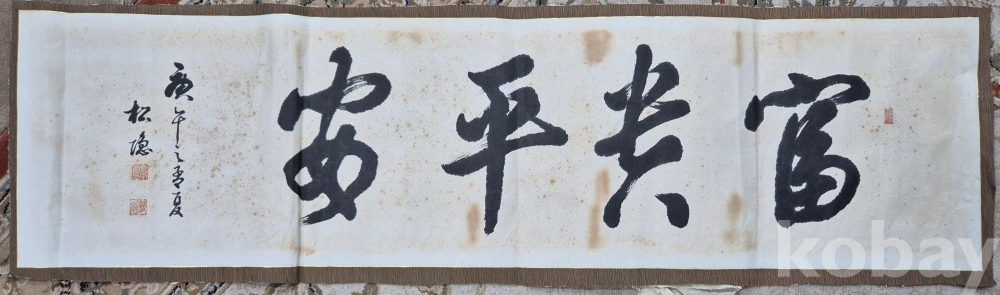 富貴平安
庚午之孟夏
松隱
kobay